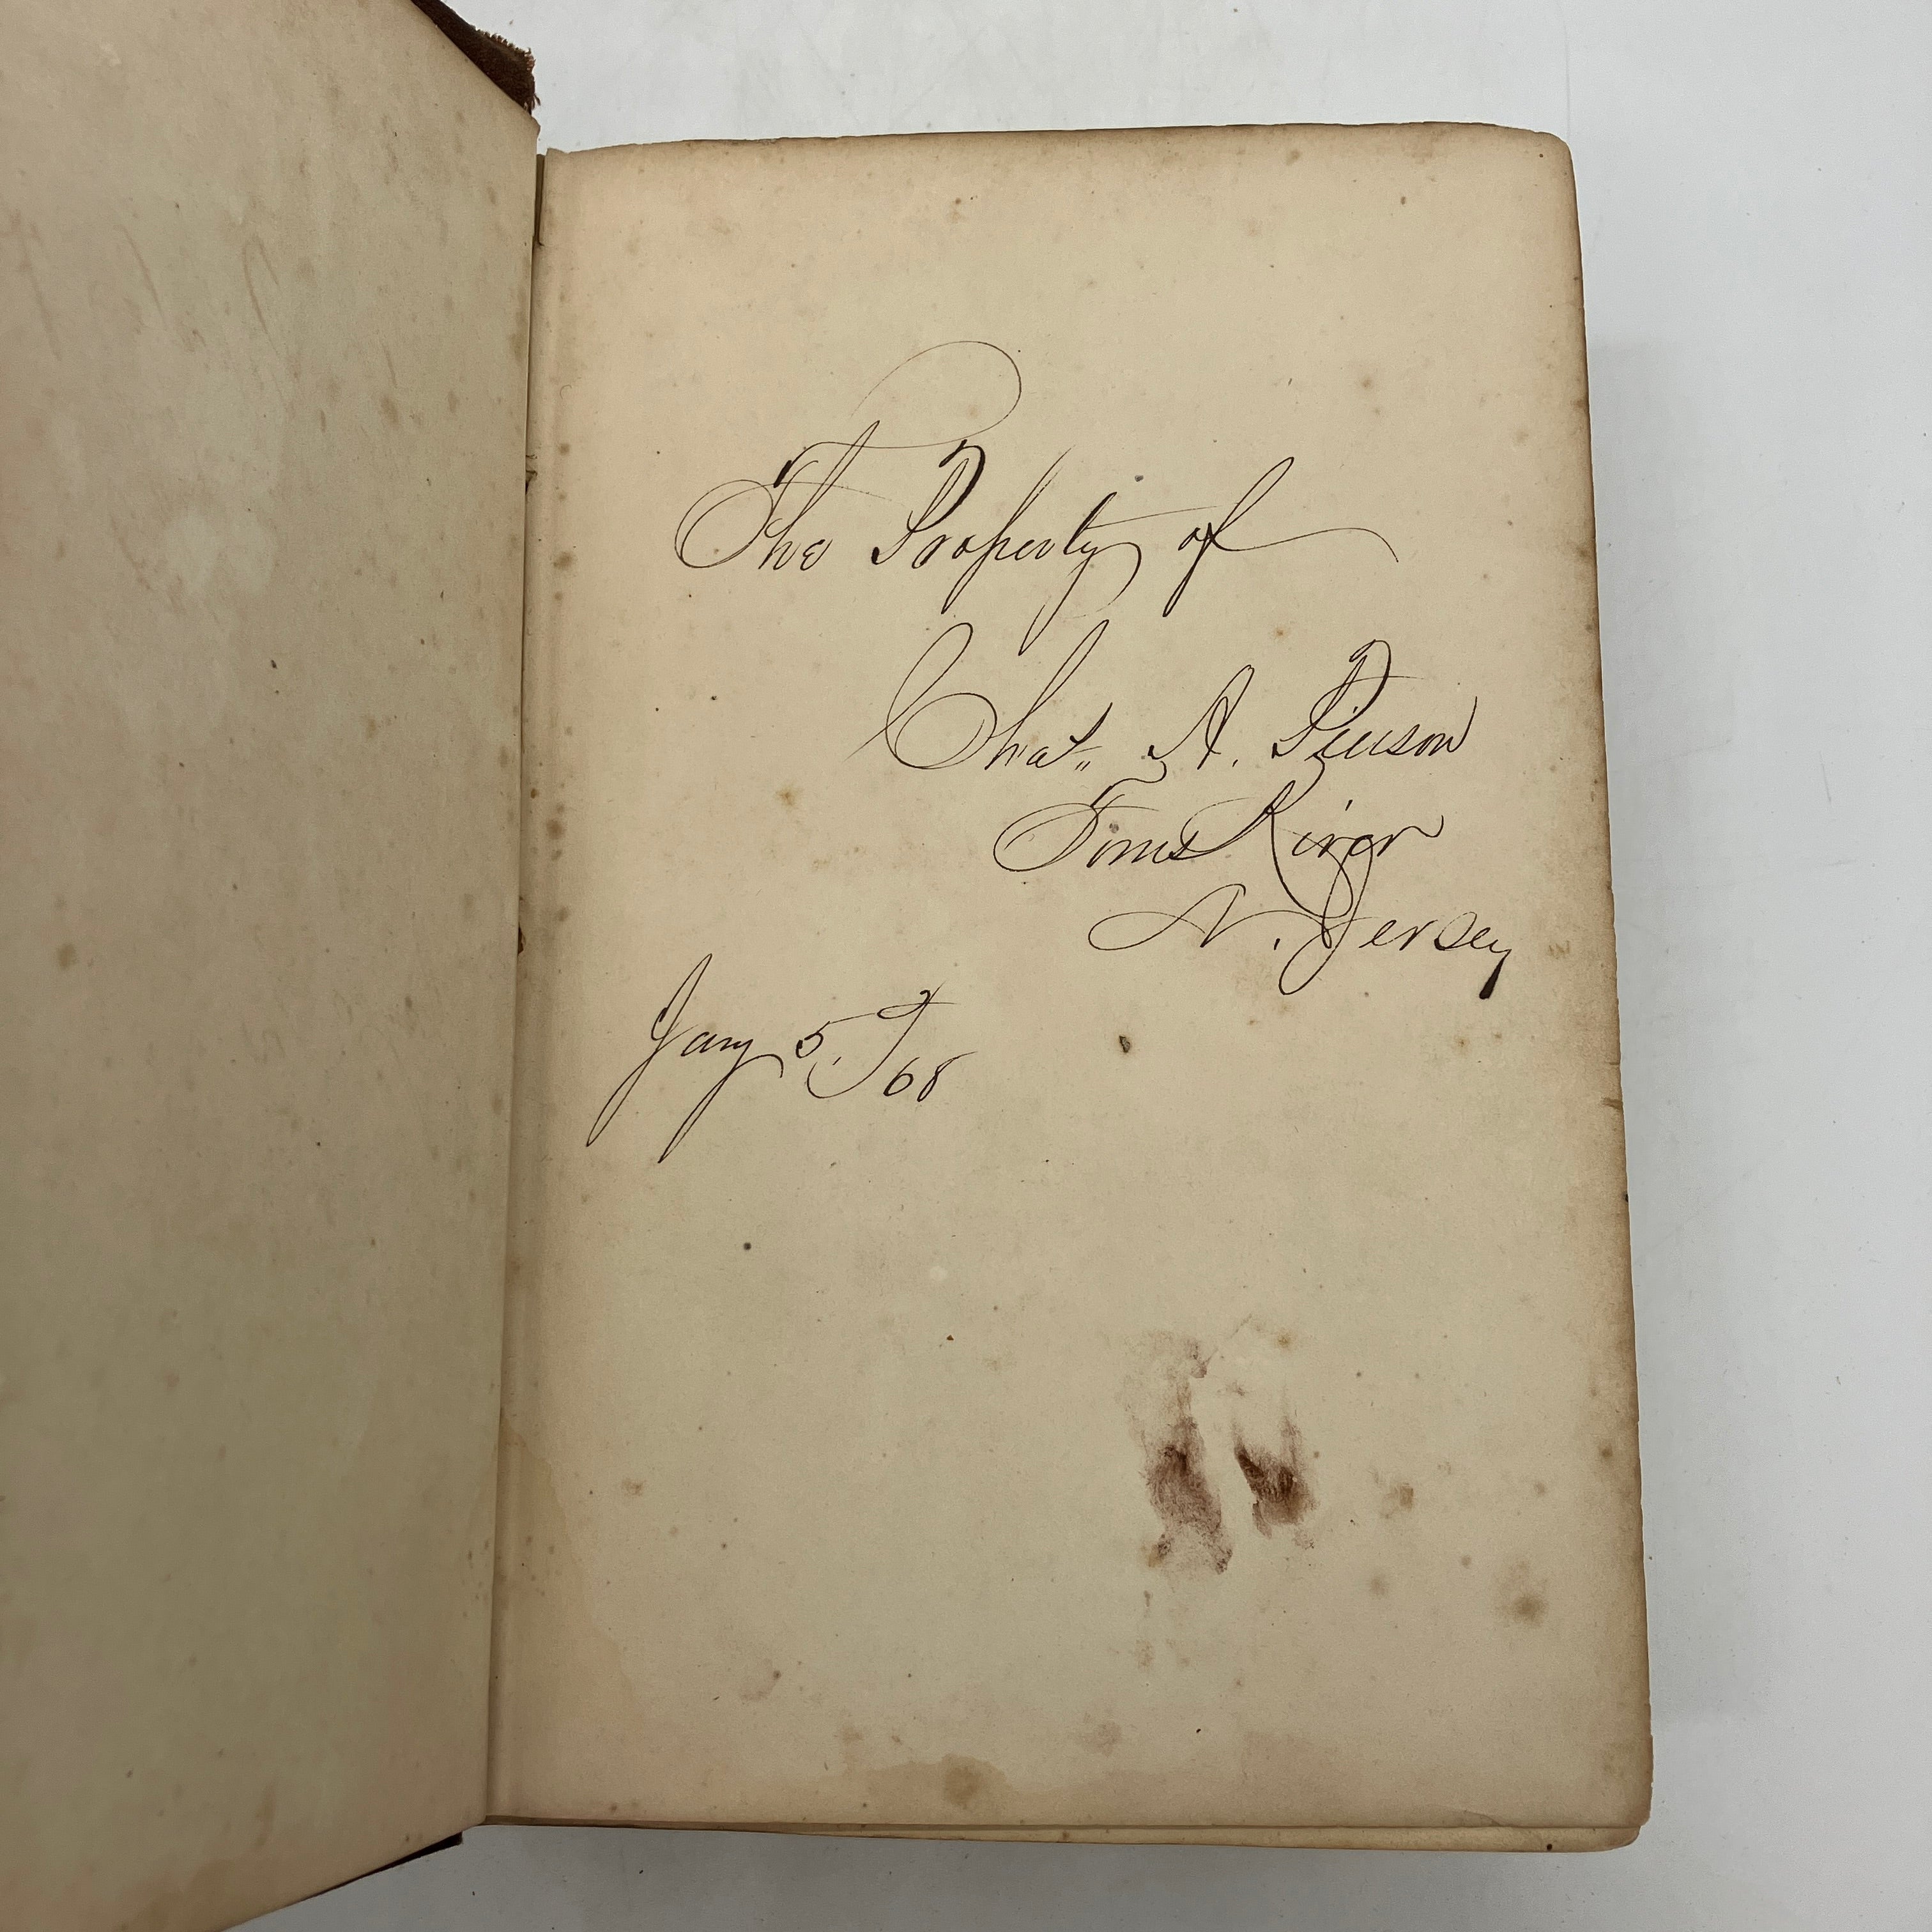 The Property of
Chas. A. Pierson
Toms River
N. Jersey
Jany 5, /68